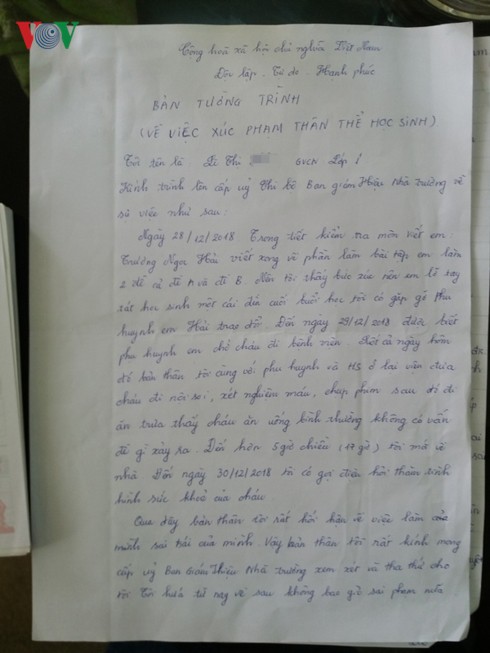 VOV
Cộng hoà xã hội chủ nghĩa Việt Nam
Độc lập - Tự do - Hạnh phúc
BẢN TƯỜNG TRÌNH
(VỀ VIỆC XÚC PHẠM THÂN THỂ HỌC SINH)
Tôi tên là Lê Thị GVCN Lớp 1
Kính trình lên cấp uỷ Chi bộ Ban giám Hiệu Nhà trường về
sự việc như sau:
Ngày 28/12/2018 Trong tiết kiểm tra môn viết em
Trương Ngọc Hải viết xong về phần làm bài tập em làm
2 đề cả đề A và đề B. Nên tôi thấy bức xúc nên em lỡ tay
tát học sinh một cái đến cuối buổi học tôi có gặp gỡ Phụ
huynh em Hải trao đổi. Đến ngày 29/12/2018 được biết
phụ huynh em chở cháu đi bệnh viện cả ngày hôm
đó bản thân tôi cùng với phụ huynh và HS ở lại viện đưa
cháu đi nội soi, xét nghiệm máu, chụp phim sau đó đi
ăn trưa thấy cháu ăn uống bình thường không có vấn
đề gì xảy ra. Đến hơn 5 giờ chiều (17 giờ) tôi mới về
nhà Đến ngày 30/12/2018 tôi có gọi điện hỏi thăm tình
hình sức khoẻ của cháu.
Qua đây bản thân tôi rất hối hận về việc làm của
mình sai trái của mình. Vậy bản thân tôi rất kính mong
cấp uỷ Ban Giám Hiệu Nhà trường xem xét và tha thứ cho
tôi Tôi hứa từ nay về sau không bao giờ sai phạm nữa